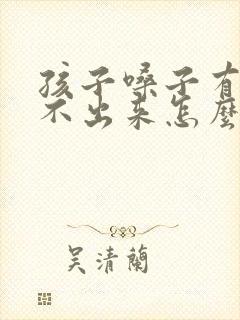 孩子嗓子有
不出来怎麼
吴清蘭